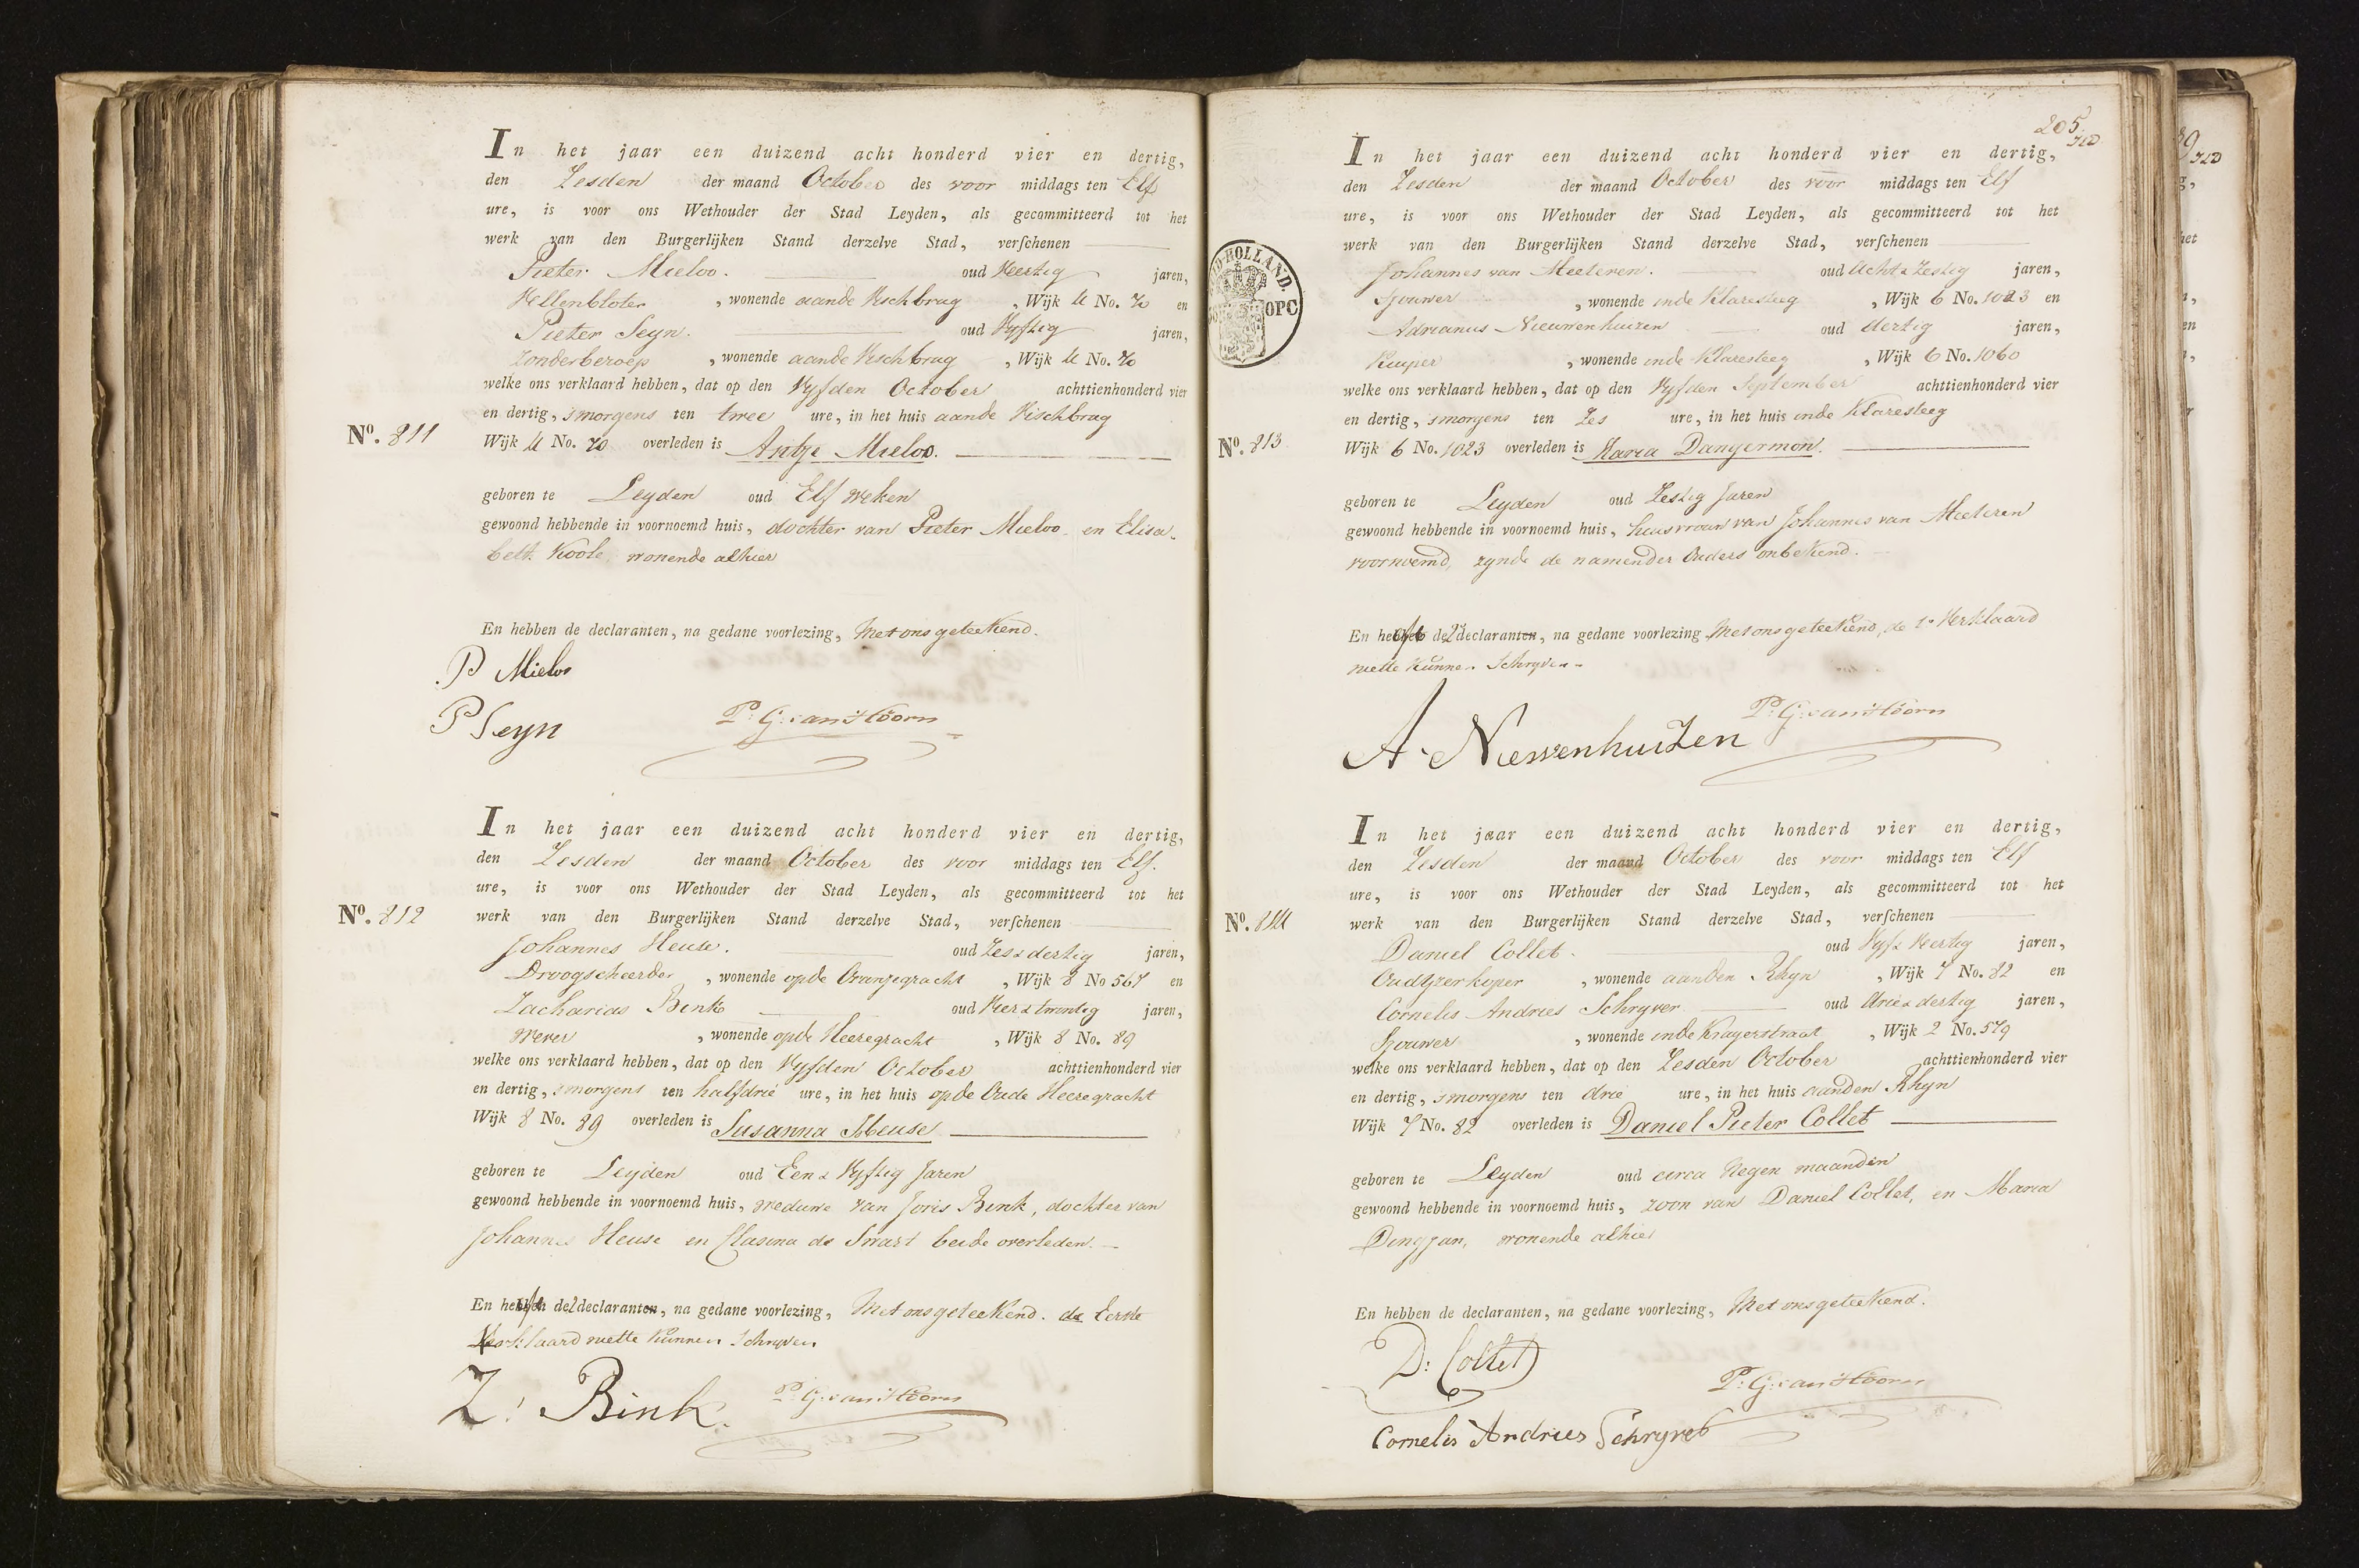 In het jaar een duizend acht honderd vier en dertig,
den Zesden der maand October des voor middags ten Elf
ure, is voor ons Wethouder der Stad Leyden, als gecommitteerd tot het
werk van den Burgerlijken Stand derzelve Stad, verschenen
Pieter Mieloo. oud Veertig jaren,
Vellenbloter, wonende aande Vischbrug, Wijk 4 No. 70 en
Pieter Seyn. oud Vyftig jaren,
zonder beroep, wonende aande Vischbrug, Wijk 4 No. 70
welke ons verklaard hebben, dat op den Vyfden October achttienhonderd vier
en dertig, smorgens ten twee ure, in het huis aande Vischbrug
No. 811 Wijk 4 No. 70 overleden is Antje Mieloo.
geboren te Leyden oud Elf weken
gewoond hebbende in voornoemd huis, dochter van Pieter Mieloo en Elisa-
beth Koole, wonende alhier
En hebben de declaranten, na gedane voorlezing, Met ons geteekend.
P Mieloo
P Seyn P: G: van Hoorn
In het jaar een duizend acht honderd vier en dertig,
den Zesden der maand October des voor middags ten Elf.
ure, is voor ons Wethouder der Stad Leyden, als gecommitteerd tot het
No. 812 werk van den Burgerlijken Stand derzelve Stad, verschenen
Johannes Heuse. oud Zes & dertig jaren,
Droogscheerder, wonende opde Oranjegracht, Wijk 8 No 567 en
Zacharias Bink oud Vier & twintig jaren,
Wever, wonende opde Heeregracht, Wijk 8 No. 89
welke ons verklaard hebben, dat op den Vyfden October achttienhonderd vier
en dertig, smorgens ten halfdrie ure, in het huis opde Oude Heeregracht
Wijk 8 No. 89 overleden is Susanna Heuse
geboren te Leyden oud Een & Vyftig Jaren
gewoond hebbende in voornoemd huis, weduwe van Joris Bink, dochter van
Johannes Heuse en Clasina de Swart beide overleden.
En heeft de 2e declarant, na gedane voorlezing, Met ons geteekend. de Eerste
Verklaard niette kunnen Schryven
Z: Bink. P: G: van Hoorn
205
In het jaar een duizend acht honderd vier en dertig,
den Zesden der maand October des voor middags ten Elf
ure, is voor ons Wethouder der Stad Leyden, als gecommitteerd tot het
werk van den Burgerlijken Stand derzelve Stad, verschenen
HOLLAND.
OPC
Johannes van Meeteren. oud Acht & Zestig jaren,
Sjouwer, wonende inde Klaresteeg, Wijk 6 No. 1023 en
Adrianus Nieuwenhuizen oud dertig jaren,
Kuyper, wonende inde Klaresteeg, Wijk 6 No. 1060
welke ons verklaard hebben, dat op den Vyfden September achttienhonderd vier
en dertig, smorgens ten Zes ure, in het huis inde Klaresteeg
No. 813 Wijk 6 No. 1023 overleden is Maria Dangermon.
geboren te Leyden oud Zestig Jaren
gewoond hebbende in voornoemd huis, huisvrouw van Johannes van Meeteren
voornoemd, zynde de namen der Ouders onbekend.
En heeft de 2e declarant, na gedane voorlezing Met ons geteekend, de 1e Verklaard
niette kunnen Schryven
A. Niewenhuizen P: G: van Hoorn
In het jaar een duizend acht honderd vier en dertig,
den Zesden der maand October des voor middags ten Elf
ure, is voor ons Wethouder der Stad Leyden, als gecommitteerd tot het
No. 814 werk van den Burgerlijken Stand derzelve Stad, verschenen
Daniel Collet. oud Vyf & Veertig jaren,
Oudyzerkoper, wonende aanden Rhyn, Wijk 7 No. 82 en
Cornelis Andries Schryver oud drie & dertig jaren,
Sjouwer, wonende inde Krayerstraat, Wijk 2 No. 579
welke ons verklaard hebben, dat op den Zesden October achttienhonderd vier
en dertig, smorgens ten drie ure, in het huis aanden Rhyn
Wijk 7 No. 82 overleden is Daniel Pieter Collet
geboren te Leyden oud circa Negen maanden
gewoond hebbende in voornoemd huis, zoon van Daniel Collet, en Maria
Dingjan, wonende alhier
En hebben de declaranten, na gedane voorlezing, Met ons geteekend.
D: Collet
P: G: van Hoorn
Cornelis Andries Schryver